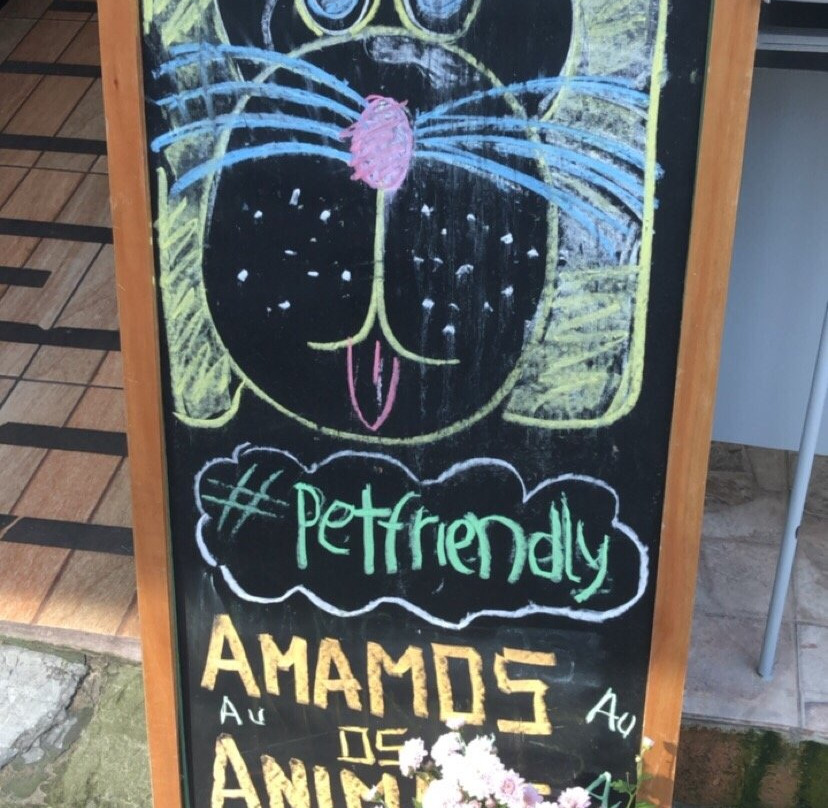 #Petfriendly
AMAMOS
Au Au
OS